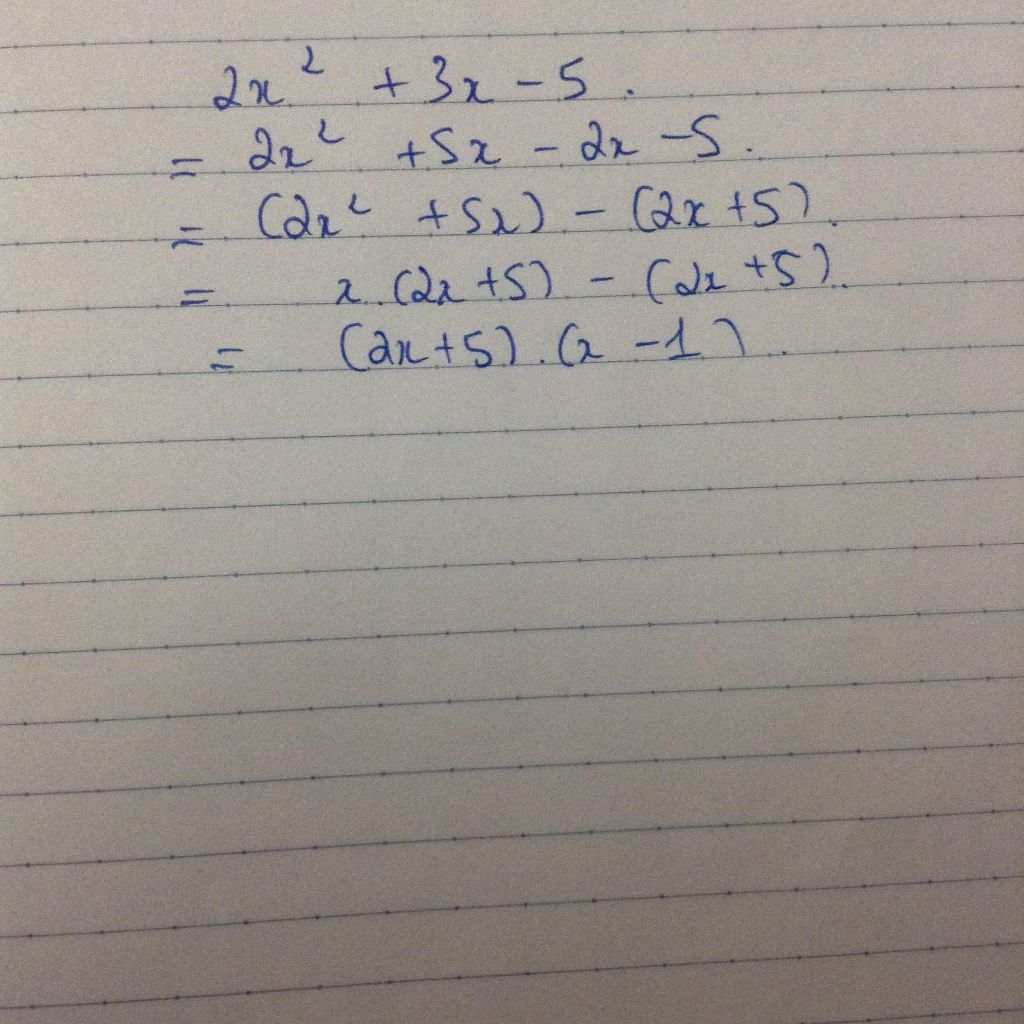 2x² + 3x - 5.
= 2x² + 5x - 2x - 5.
= (2x² + 5x) - (2x + 5).
= x.(2x + 5) - (2x + 5).
= (2x + 5).(x - 1).